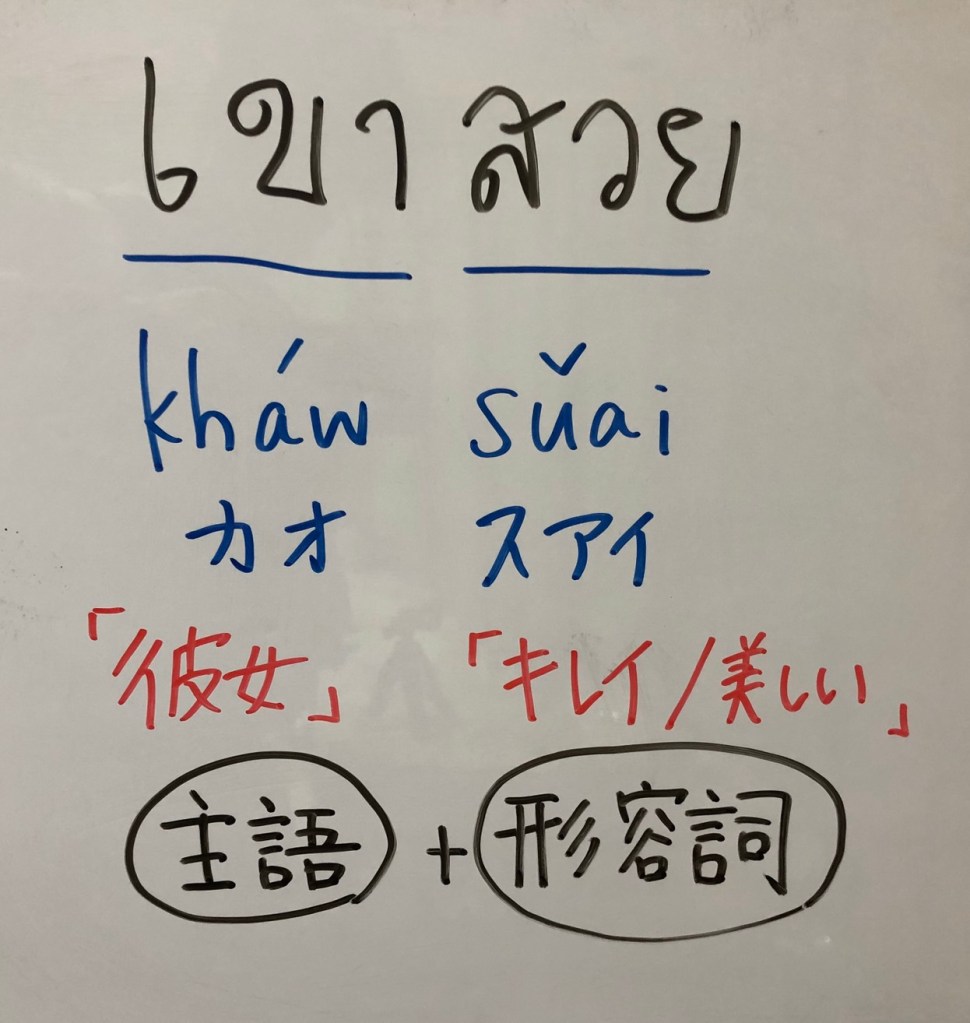 เขา สวย
kháw sǔai
カオ スアイ
「彼女」 「キレイ/美しい」
主語 + 形容詞